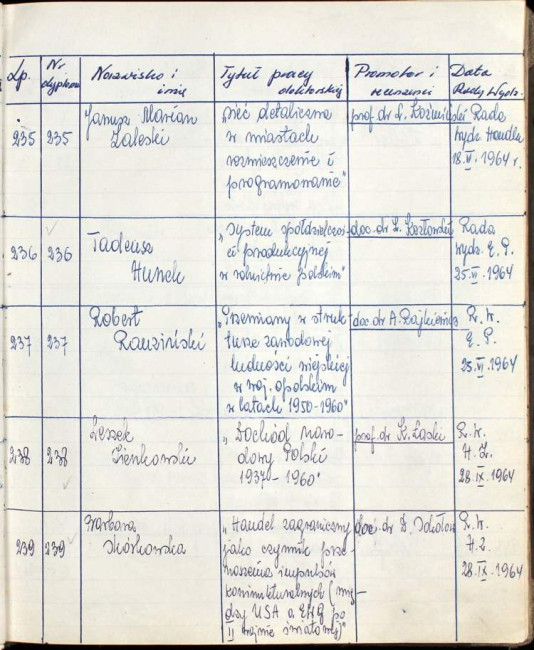 Lp.
Nr dyplomu
Nazwisko i imię
Tytuł pracy doktorskiej
Promotor i recenzenci
Data Rady Wydz.
235
235
Janusz Marian
Zaleski
sieć detaliczna
w miastach
rozmieszczenie i
programowanie"
prof. dr
Rada
Wydz. Handlu
18.VI.1964 r.
236
236
Tadeusz
Hunek
„System spółdzielczoś
ci produkcyjnej
w rolnictwie polskim"
doc. dr
Rada
Wydz. E. P.
25.VI.1964
237
237
Robert
Rauziński
„Przemiany w struk
turze zawodowej
ludności wiejskiej
w woj. opolskim
w latach 1950-1960"
doc dr A. Rajkiewicz
R. W.
E. P.
25.VI.1964
238
238
Leszek
Zienkowski
„Dochód naro-
dowy Polski
1937-1960"
prof. dr K. Łaski
R. W.
H. Z.
28.IX.1964
239
239
Barbara
Skórkowska
„Handel zagraniczny
jako czynnik prze
noszenia impulsów
koniunkturalnych (mię-
dzy USA a EWG po
II wojnie światowej)"
doc. dr
R. W.
H. Z.
28.IX.1964